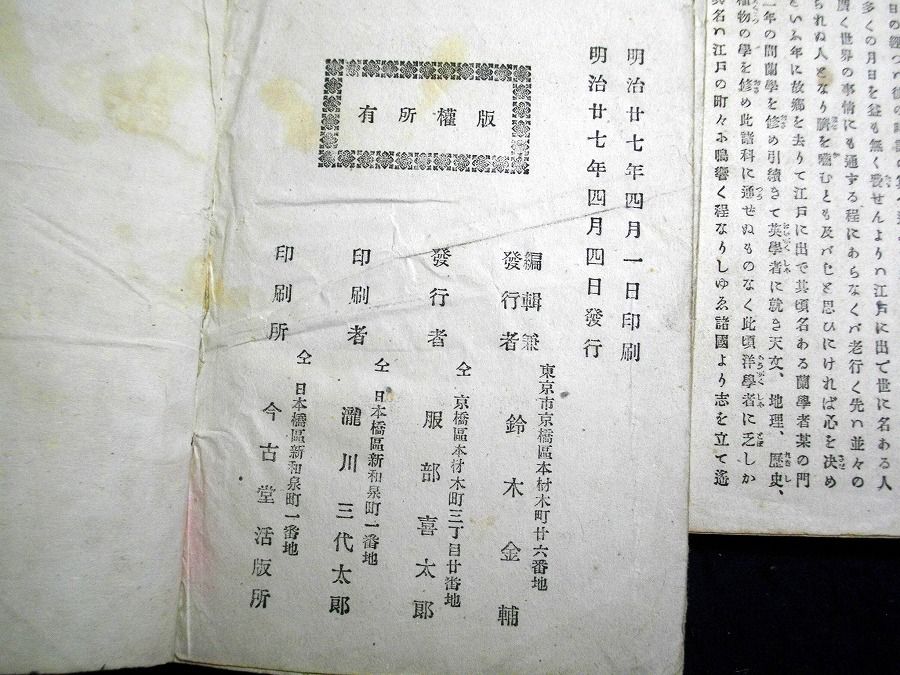 日の經つ
多くの月日を益も無く費せんよりハ江戸に出で世に名ある人
廣く世界の事情にも通ずる程にあらなくバ老行く先ハ並々の
られぬ人となり臍を噬むとも及バじと思ひにければ心を决め
といふ年に故郷を去りて江戸に出で其頃名ある蘭學者某の門
一年の間蘭學を修め引續きて英學者に就き天文、地理、歴史、
植物の學を修め此諸科に通せぬものなく此頃洋學者に乏しか
其名ハ江戸の町々に鳴響く程なりしゆゑ諸國より志を立て遙
明治廿七年四月一日印刷
明治廿七年四月四日發行
版權所有
編輯兼
發行者
東京市京橋區本材木町廿六番地
鈴木金輔
發行者
仝 京橋區本材木町三丁目廿番地
服部喜太郎
印刷者
仝 日本橋區新和泉町一番地
瀧川三代太郎
印刷所
仝 日本橋區新和泉町一番地
今古堂活版所